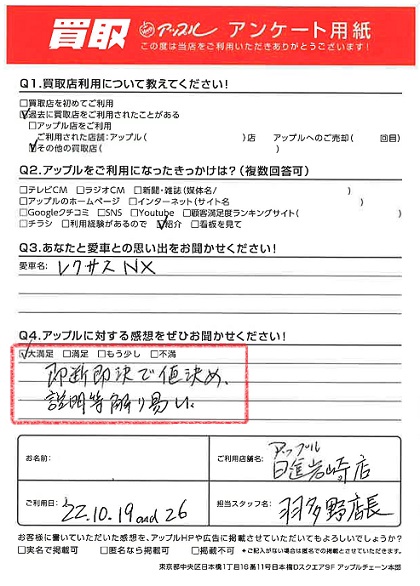 買取 アップル アンケート用紙
この度は当店をご利用いただきありがとうございます!
Q1.買取店利用について教えてください!
□買取店を初めてご利用
☑過去に買取店をご利用されたことがある
□アップル店をご利用
ご利用された店舗:アップル( )店 アップルへのご売却( 回目)
☑その他の買取店( )
Q2.アップルをご利用になったきっかけは?(複数回答可)
□テレビCM □ラジオCM □新聞・雑誌(媒体名/ )
□アップルのホームページ □インターネット(サイト名 )
□Googleクチコミ □SNS □Youtube □顧客満足度ランキングサイト( )
□チラシ □利用経験があるので ☑紹介 □看板を見て
Q3.あなたと愛車との思い出をお聞かせください!
愛車名: レクサス NX
Q4.アップルに対する感想をぜひお聞かせください!
☑大満足 □満足 □もう少し □不満
即断即決で値決め、
説明等解り易い。
お名前:
ご利用店舗名: アップル
日進岩崎店
ご利用日: 22.10.19 and 26
担当スタッフ名: 羽多野店長
お客様に書いていただいた感想を、アップルHPや広告に掲載させていただいてもよろしいでしょうか?
□実名で掲載可 □匿名なら掲載可 □掲載不可 *ご記入がない場合は匿名での掲載とさせていただきます。
東京都中央区日本橋1丁目16番11号日本橋Dスクエア5F アップルチェーン本部